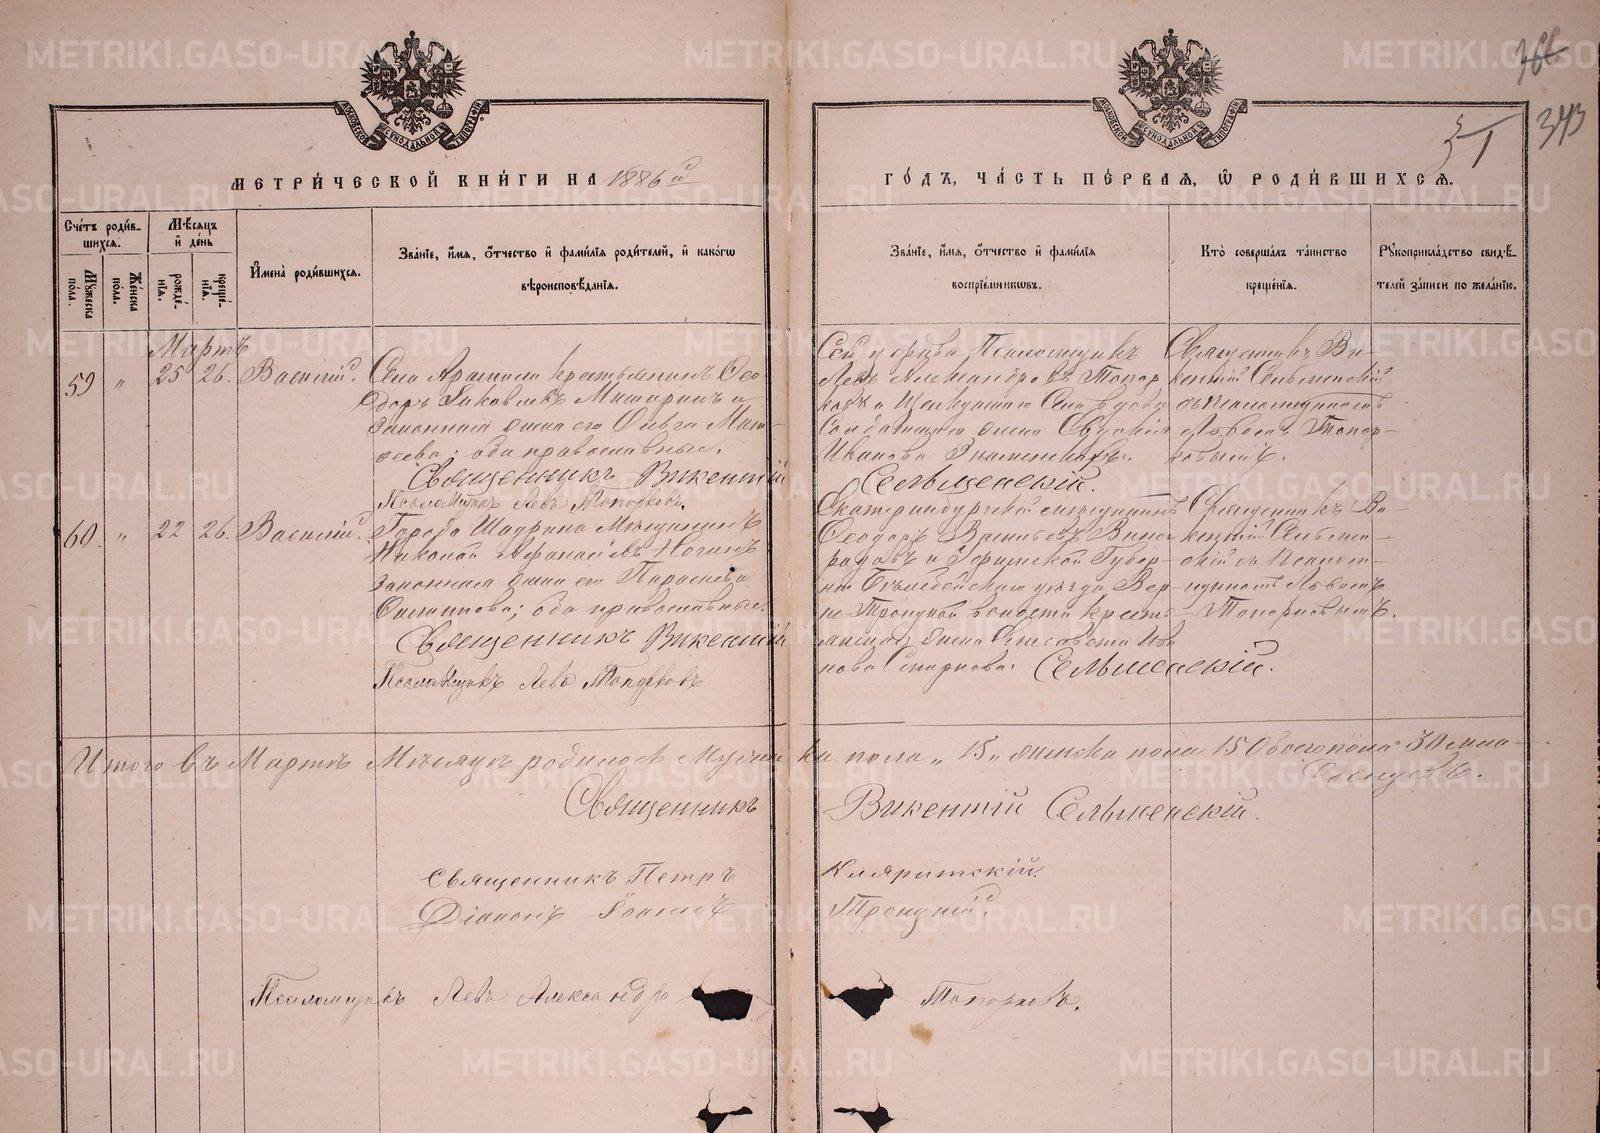 366
343
51
МЕТРИ́ЧЕСКОЙ КНИ́ГИ НА 1886й
ГО́ДЪ, ЧА́СТЬ ПЕ́РВАЯ, Ѡ РОДИ́ВШИХСЯ.
Сче́тъ роди́в-
шихся.
Мꙋжеска пола.
Же́нска пола.
Мѣ́сяцъ и де́нь
рожде́-
нія.
креще́-
нія.
И҆мена̀ роди́вшихся.
Зва́ніе, и҆́мя, ѻ҆́тчество и҆ фами́лія роди́телей, и҆ како́гѡ
вѣроисповѣ́данія.
Зва́ніе, и҆́мя, ѻ҆́тчество и҆ фами́лія
воспріе́мникѡвъ.
Кто̀ соверша́лъ та́инство
креще́нія.
Рꙋкоприкла́дство свидѣ́-
телей за́писи по жела́нію.
Мартъ
59 " 25 26. Василій.
Села Арамили крестьянинъ Ѳео-
доръ Яковлевъ Мишаринъ и
законная жена его Ольга Мат-
ѳеева; оба православные.
Священникъ Викентій
Псаломщикъ Левъ Топорковъ.
Сей церкви Псаломщикъ
Левъ Александровъ Топор-
ковъ и
Солдатская жена Евдокія
Иванова Знаменская.
Сельменскій.
Священникъ Ви-
кентій Сельменскій
съ Псаломщикомъ
Львомъ Топор-
ковымъ.
60. " 22 26. Василій.
Города Шадрина Мѣщанинъ
Николай Аѳанасіевъ Ногинъ
законная жена его Параскева
Филиппова; оба православные.
Священникъ Викентій
Псаломщикъ Левъ Топорковъ
Екатеринбургскій мѣщанинъ
Ѳеодоръ Васильевъ Вино-
градовъ и Уфимской Губер-
ніи Белебейскаго уѣзда Вер-
хо-Троицкой волости крестья-
жена Елисавета Ива
нова Смирнова.
Сельменскій.
Священникъ Ви-
кентій Сельмен-
скій съ Псалом-
щикомъ Львомъ
Топорковымъ.
Итого въ Мартѣ Мѣсяцѣ родилось Мужеска пола „ 15 „ женска пола 15 Обоего пола 30 мла-
денцевъ.
Священникъ Викентій Сельменскій.
Священникъ Петръ
Діаконъ Іоаннъ Троицкій.
Псаломщикъ Левъ Александро Топорковъ.
METRIKI.GASO-URAL.RU